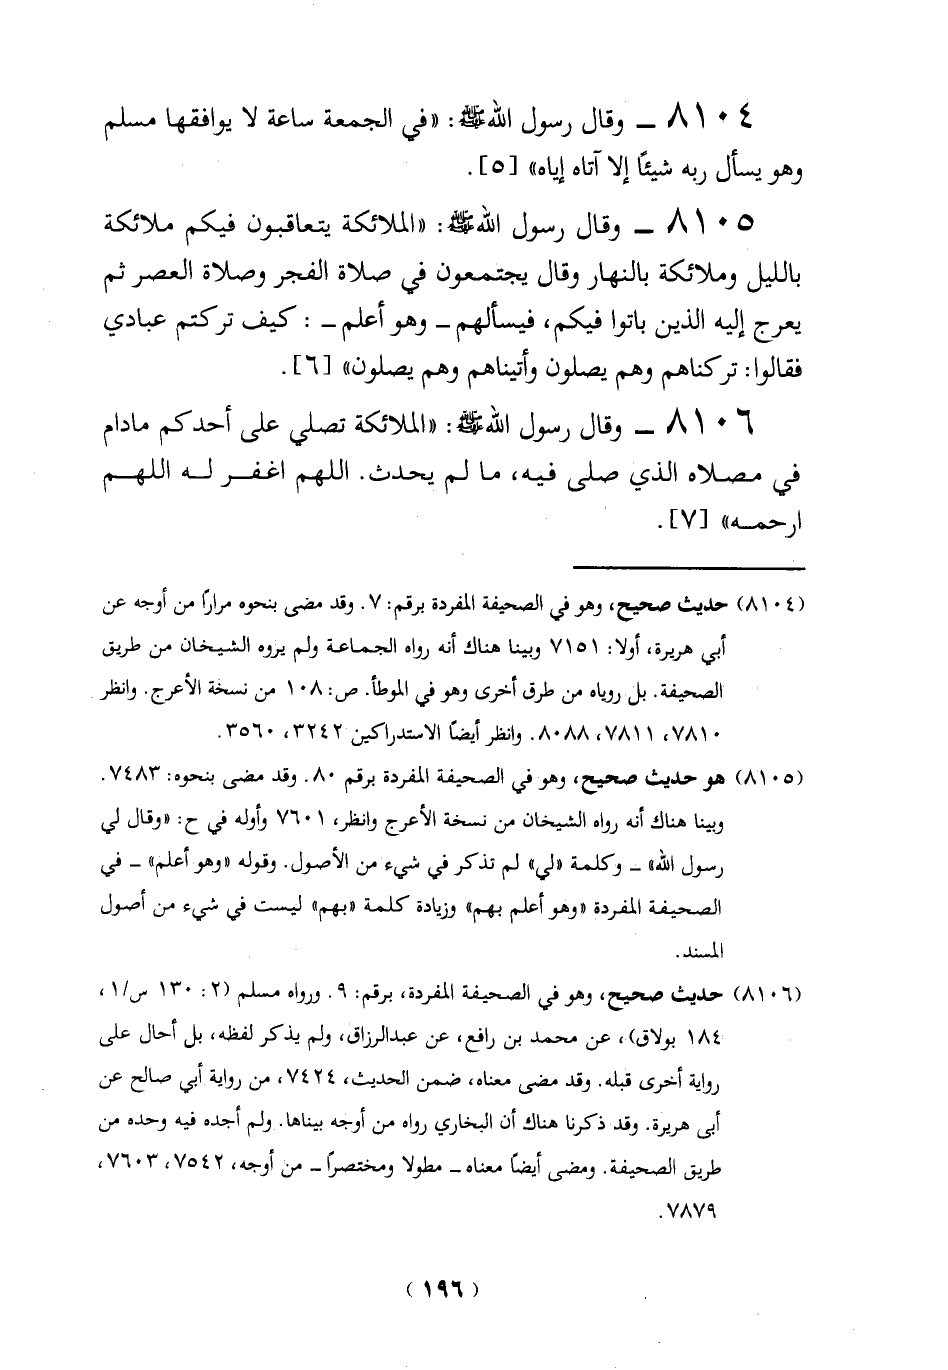 ٨١٠٤ ــ وقال رسول اللهﷺ: «في الجمعة ساعة لا يوافقها مسلم
وهو يسأل ربه شيئًا إلا آتاه إياه» [٥].
٨١٠٥ ــ وقال رسول اللهﷺ: «الملائكة يتعاقبون فيكم ملائكة
بالليل وملائكة بالنهار وقال يجتمعون في صلاة الفجر وصلاة العصر ثم
يعرج إليه الذين باتوا فيكم، فيسألهم ــ وهو أعلم ــ : كيف تركتم عبادي
فقالوا: تركناهم وهم يصلون وأتيناهم وهم يصلون» [٦].
٨١٠٦ ــ وقال رسول اللهﷺ: «الملائكة تصلي على أحدكم مادام
في مصلاه الذي صلى فيه، ما لم يحدث. اللهم اغفر له اللهم
ارحمه» [٧].
(٨١٠٤) حديث صحيح، وهو في الصحيفة المفردة برقم: ٧. وقد مضى بنحوه مرارًا من أوجه عن
أبي هريرة، أولا: ٧١٥١ وبينا هناك أنه رواه الجماعة ولم يروه الشيخان من طريق
الصحيفة. بل روياه من طرق أخرى وهو في الموطأ. ص: ١٠٨ من نسخة الأعرج. وانظر
٧٨١٠، ٧٨١١، ٨٠٨٨. وانظر أيضًا الاستدراكين ٣٢٤٢، ٣٥٦٠.
(٨١٠٥) هو حديث صحيح، وهو في الصحيفة المفردة برقم ٨٠. وقد مضى بنحوه: ٧٤٨٣.
وبينا هناك أنه رواه الشيخان من نسخة الأعرج وانظر، ٧٦٠١ وأوله في ح: «وقال لي
رسول الله» ــ وكلمة «لي» لم تذكر في شيء من الأصول. وقوله «وهو أعلم» ــ في
الصحيفة المفردة «وهو أعلم بهم» وزيادة كلمة «بهم» ليست في شيء من أصول
المسند.
(٨١٠٦) حديث صحيح، وهو في الصحيفة المفردة، برقم: ٩. ورواه مسلم (٢: ١٣٠ س/١،
١٨٤ بولاق)، عن محمد بن رافع، عن عبدالرزاق، ولم يذكر لفظه، بل أحال على
رواية أخرى قبله. وقد مضى معناه، ضمن الحديث، ٧٤٢٤، من رواية أبي صالح عن
أبى هريرة. وقد ذكرنا هناك أن البخاري رواه من أوجه بيناها. ولم أجده فيه وحده من
طريق الصحيفة. ومضى أيضًا معناه ــ مطولا ومختصرًا ــ من أوجه، ٧٥٤٢، ٧٦٠٣،
٧٨٧٩.
(١٩٦)